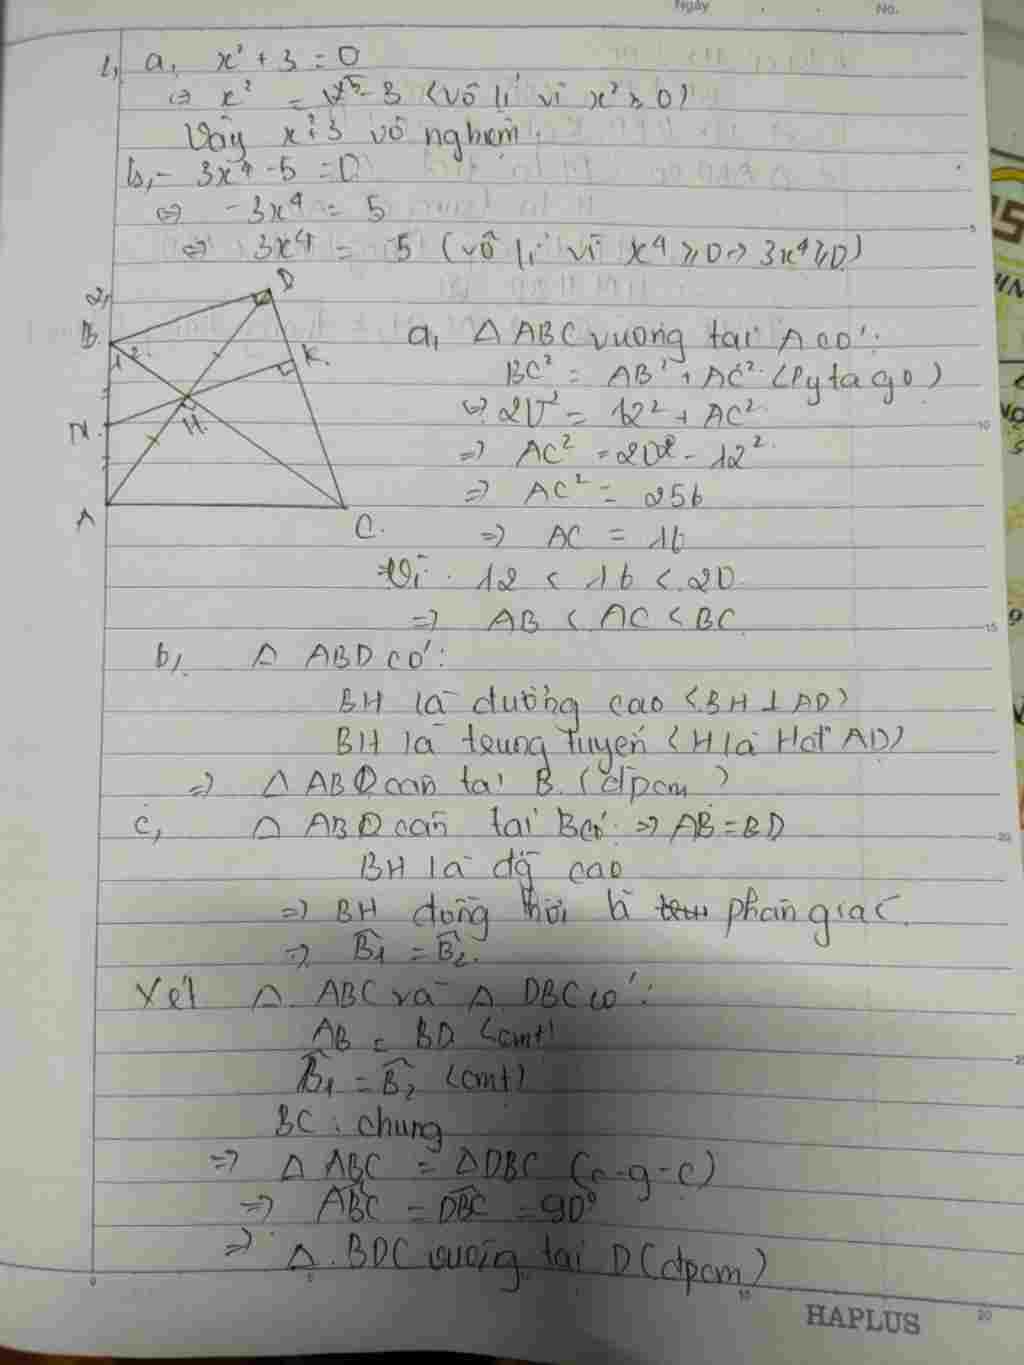 Ngày . . No.
1, a, x² + 3 = 0
⇒ x² = - 3 (vô lí vì x² ≥ 0)
Vậy x²+3 vô nghiệm.
b, - 3x⁴ - 5 = 0
⇒ -3x⁴ = 5
⇒ 3x⁴ = 5 (vô lí vì x⁴ ≥ 0 → 3x⁴ ≥ 0)
2,
D
B
1 2
K
N
H
A
C
a, Δ ABC vuông tại A có:
BC² = AB² + AC² (Pytago)
⇒ 20² = 12² + AC²
⇒ AC² = 20² - 12²
⇒ AC² = 256
⇒ AC = 16
Vì 12 < 16 < 20
⇒ AB < AC < BC
b, Δ ABD có:
BH là đường cao (BH ⊥ AD)
BH là trung tuyến (H là AD)
⇒ Δ ABD cân tại B. (đpcm)
c, Δ ABD cân tại B có: ⇒ AB = BD
BH là đg cao
⇒ BH đồng thời là phân giác.
⇒ B̂₁ = B̂₂.
Xét Δ ABC và Δ DBC có:
AB = BD (cmt)
B̂₁ = B̂₂ (cmt)
BC : chung
⇒ Δ ABC = Δ DBC (c-g-c)
⇒ ABC = DBC = 90°
⇒ Δ.BDC vuông tại D (đpcm)
HAPLUS